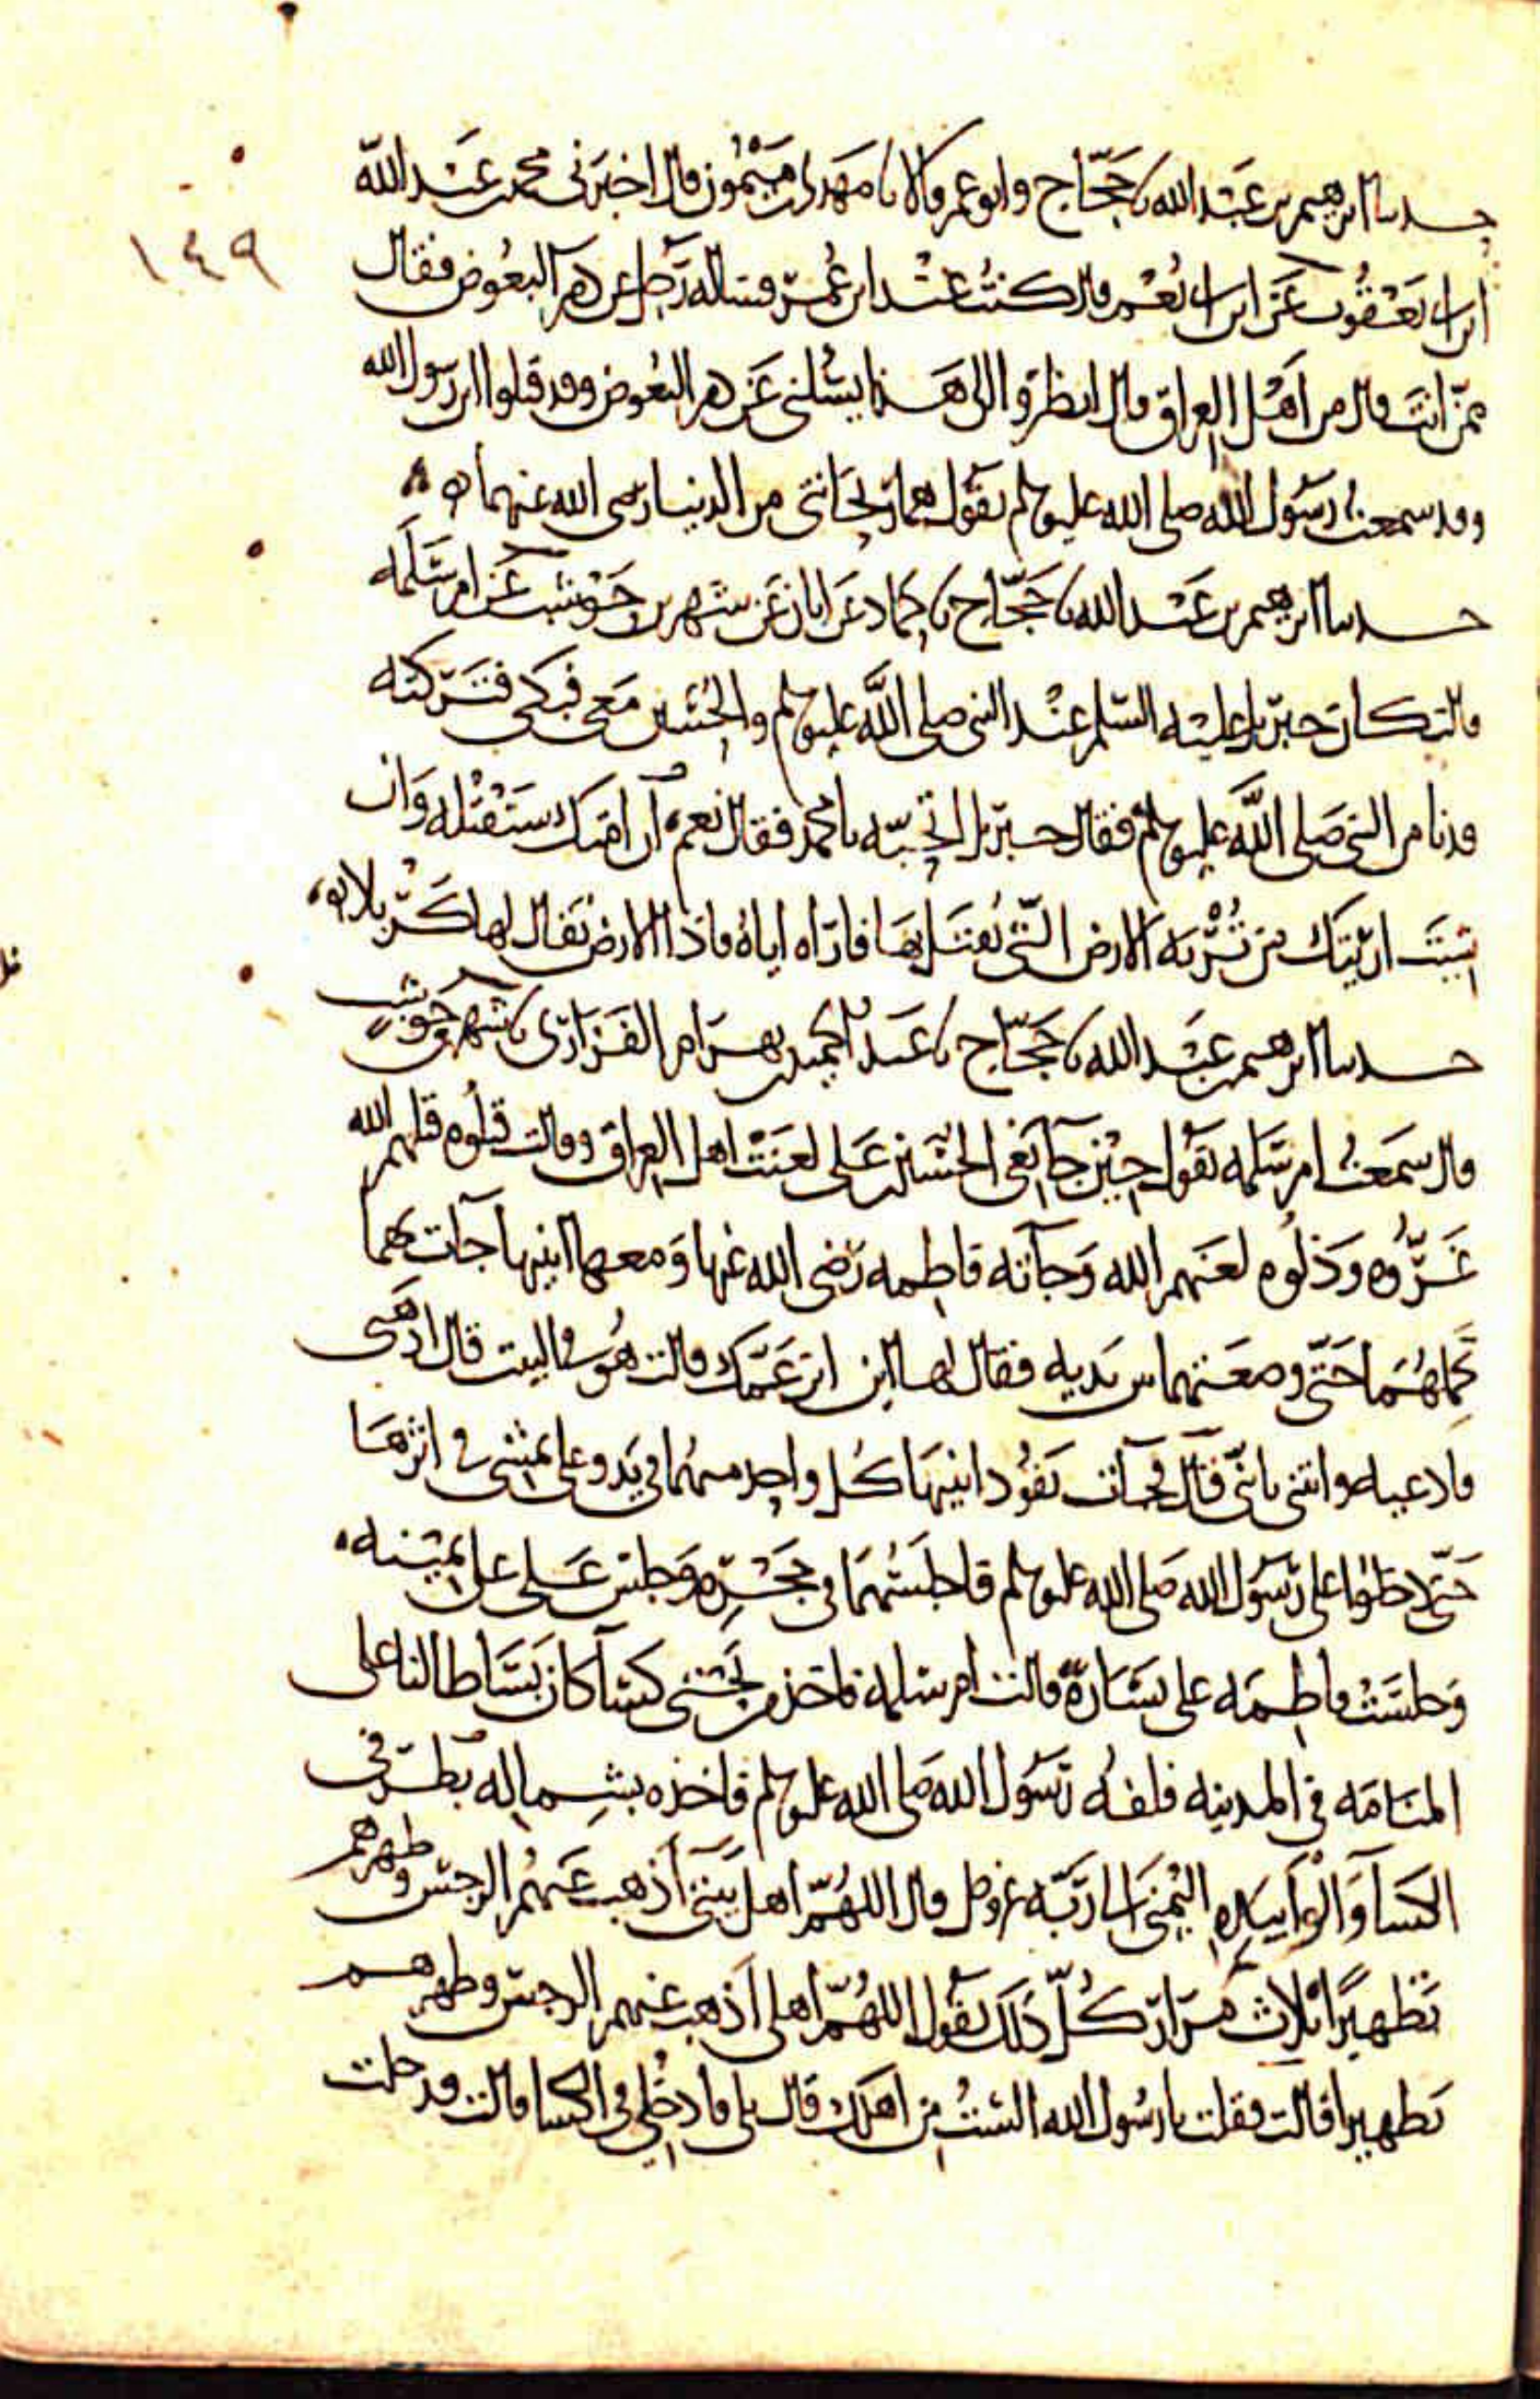 حدثنا ابرهيم بن عبد الله نا حجاج وابو عمر قالا نا مهدي بن ميمون قال اخبرني محمد بن عبد الله
١٤٩
ابن ابي يعقوب عن ابن ابي نعم قال كنت عند ابن عمر فساله رجل عن دم البعوض فقال
ممن انت قال من اهل العراق قال انظروا الى هذا يسلني عن دم البعوض وقد قتلوا ابن رسول الله
وقد سمعت رسول الله صلى الله عليه وسلم يقول هما ريحانتي من الدنيا رضي الله عنهما
حدثنا ابرهيم بن عبد الله نا حجاج نا حماد عن ابان عن شهر بن حوشب عن ام سلمه
قالت كان جبريل عليه السلم عند النبي صلى الله عليه وسلم والحسين معي فبكى فتركته
فدنا من النبي صلى الله عليه وسلم فقال جبريل اتحبه يا محمد فقال نعم ان امتك ستقتله وان
شيت اريتك من تربه الارض التي يقتل بها فاراه اياه فاذا الارض يقال لها كربلا
حدثنا ابرهيم بن عبد الله نا حجاج نا عبد الحميد بن بهرام الفزاري نا شهر بن حوشب
قال سمعت ام سلمه تقول حين جا نعي الحسين بن علي لعنت اهل العراق وقالت قتلوه قتلهم الله
غروه وذلوه لعنهم الله وجاته فاطمه رضي الله عنها ومعها ابنيها جات بهما
تحملهما حتى وضعتهما بين يديه فقال لها اين ابن عمك قالت هو في البيت قال اذهبي
فادعيه واتني بابني قال فجات تقود ابنيها كل واحد منهما في يد وعلي يمشي في اثرها
حتى دخلوا على رسول الله صلى الله عليه وسلم فاجلسهما في حجره وجلس علي على يمينه
وجلست فاطمه على يساره قالت ام سلمه فاخذ من تحتي كسا كان بساطا لنا على
المنامه في المدينه فلفه رسول الله صلى الله عليه وسلم فاخذه بشماله بطرفي
الكسا والوى بيده اليمنى الى ربه عز وجل قال اللهم اهل بيتي اذهب عنهم الرجس وطهرهم
تطهيرا ثلاث مرار كل ذلك يقول اللهم اهلي اذهب عنهم الرجس وطهرهم
تطهيرا قالت فقلت يا رسول الله الست من اهلك قال بلى فادخلي في الكسا قالت فدخلت